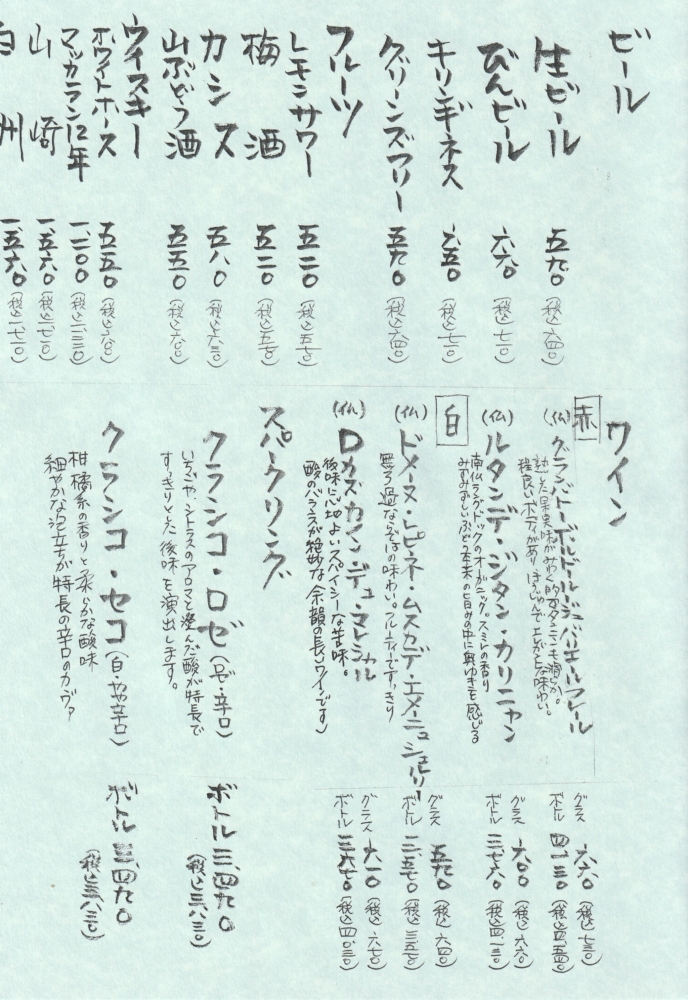 ビール
生ビール 五九〇 (税込六四〇)
びんビール 六六〇 (税込七一〇)
キリンギネス 六五〇 (税込七〇〇)
グリーンズフリー 五九〇 (税込六四〇)
フルーツ
レモンサワー 五二〇 (税込五七〇)
梅酒 五二〇 (税込五七〇)
カシス 五八〇 (税込六三〇)
山ぶどう酒 五五〇 (税込六〇〇)
ウイスキー
ホワイトホース 五五〇 (税込六〇〇)
マッカラン12年 一、二〇〇 (税込一、三二〇)
山崎 一、五六〇 (税込一、七一〇)
白州 一、五六〇 (税込一、七一〇)
ワイン
赤
(仏) グランバトー・ボルドールージュ・バリエールフレール
熟した果実味がみわく的
程良いボディがあり
グラス 六六〇 (税込七三〇)
ボトル 四、一三〇 (税込四、五四〇)
(仏) ルタンデ・ジタン・カリニャン
南仏ラングドックのオーガニック。スミレの香り
みずみずしいぶどう本来の旨みの中に奥ゆきを感じる
グラス 六〇〇 (税込六六〇)
ボトル 三、七六〇 (税込四、一三〇)
白
(仏) ドメーヌ・レピネ・ムスカデ・エメーニュ シュルリー
無ろ過ならではの味わい。フルーティですっきり
グラス 五九〇 (税込六四〇)
(仏) ロカズカイン デュ・マレシャル
後味に心地よいスパイシーな苦味。
酸のバランスが絶妙な余韻の長いワインです)
グラス 六一〇 (税込六七〇)
ボトル 三、六七〇 (税込四、〇三〇)
スパークリング
クラシコ・ロゼ (ロゼ・辛口) ボトル 三、四九〇 (税込三、八三〇)
いちごや、シトラスのアロマと澄んだ酸が特長で
すっきりとした後味を演出します。
クラシコ・セコ (白・やや辛口) ボトル 三、四九〇 (税込三、八三〇)
柑橘系の香りと柔らかな酸味
細やかな泡立ちが特長の辛口のカヴァ